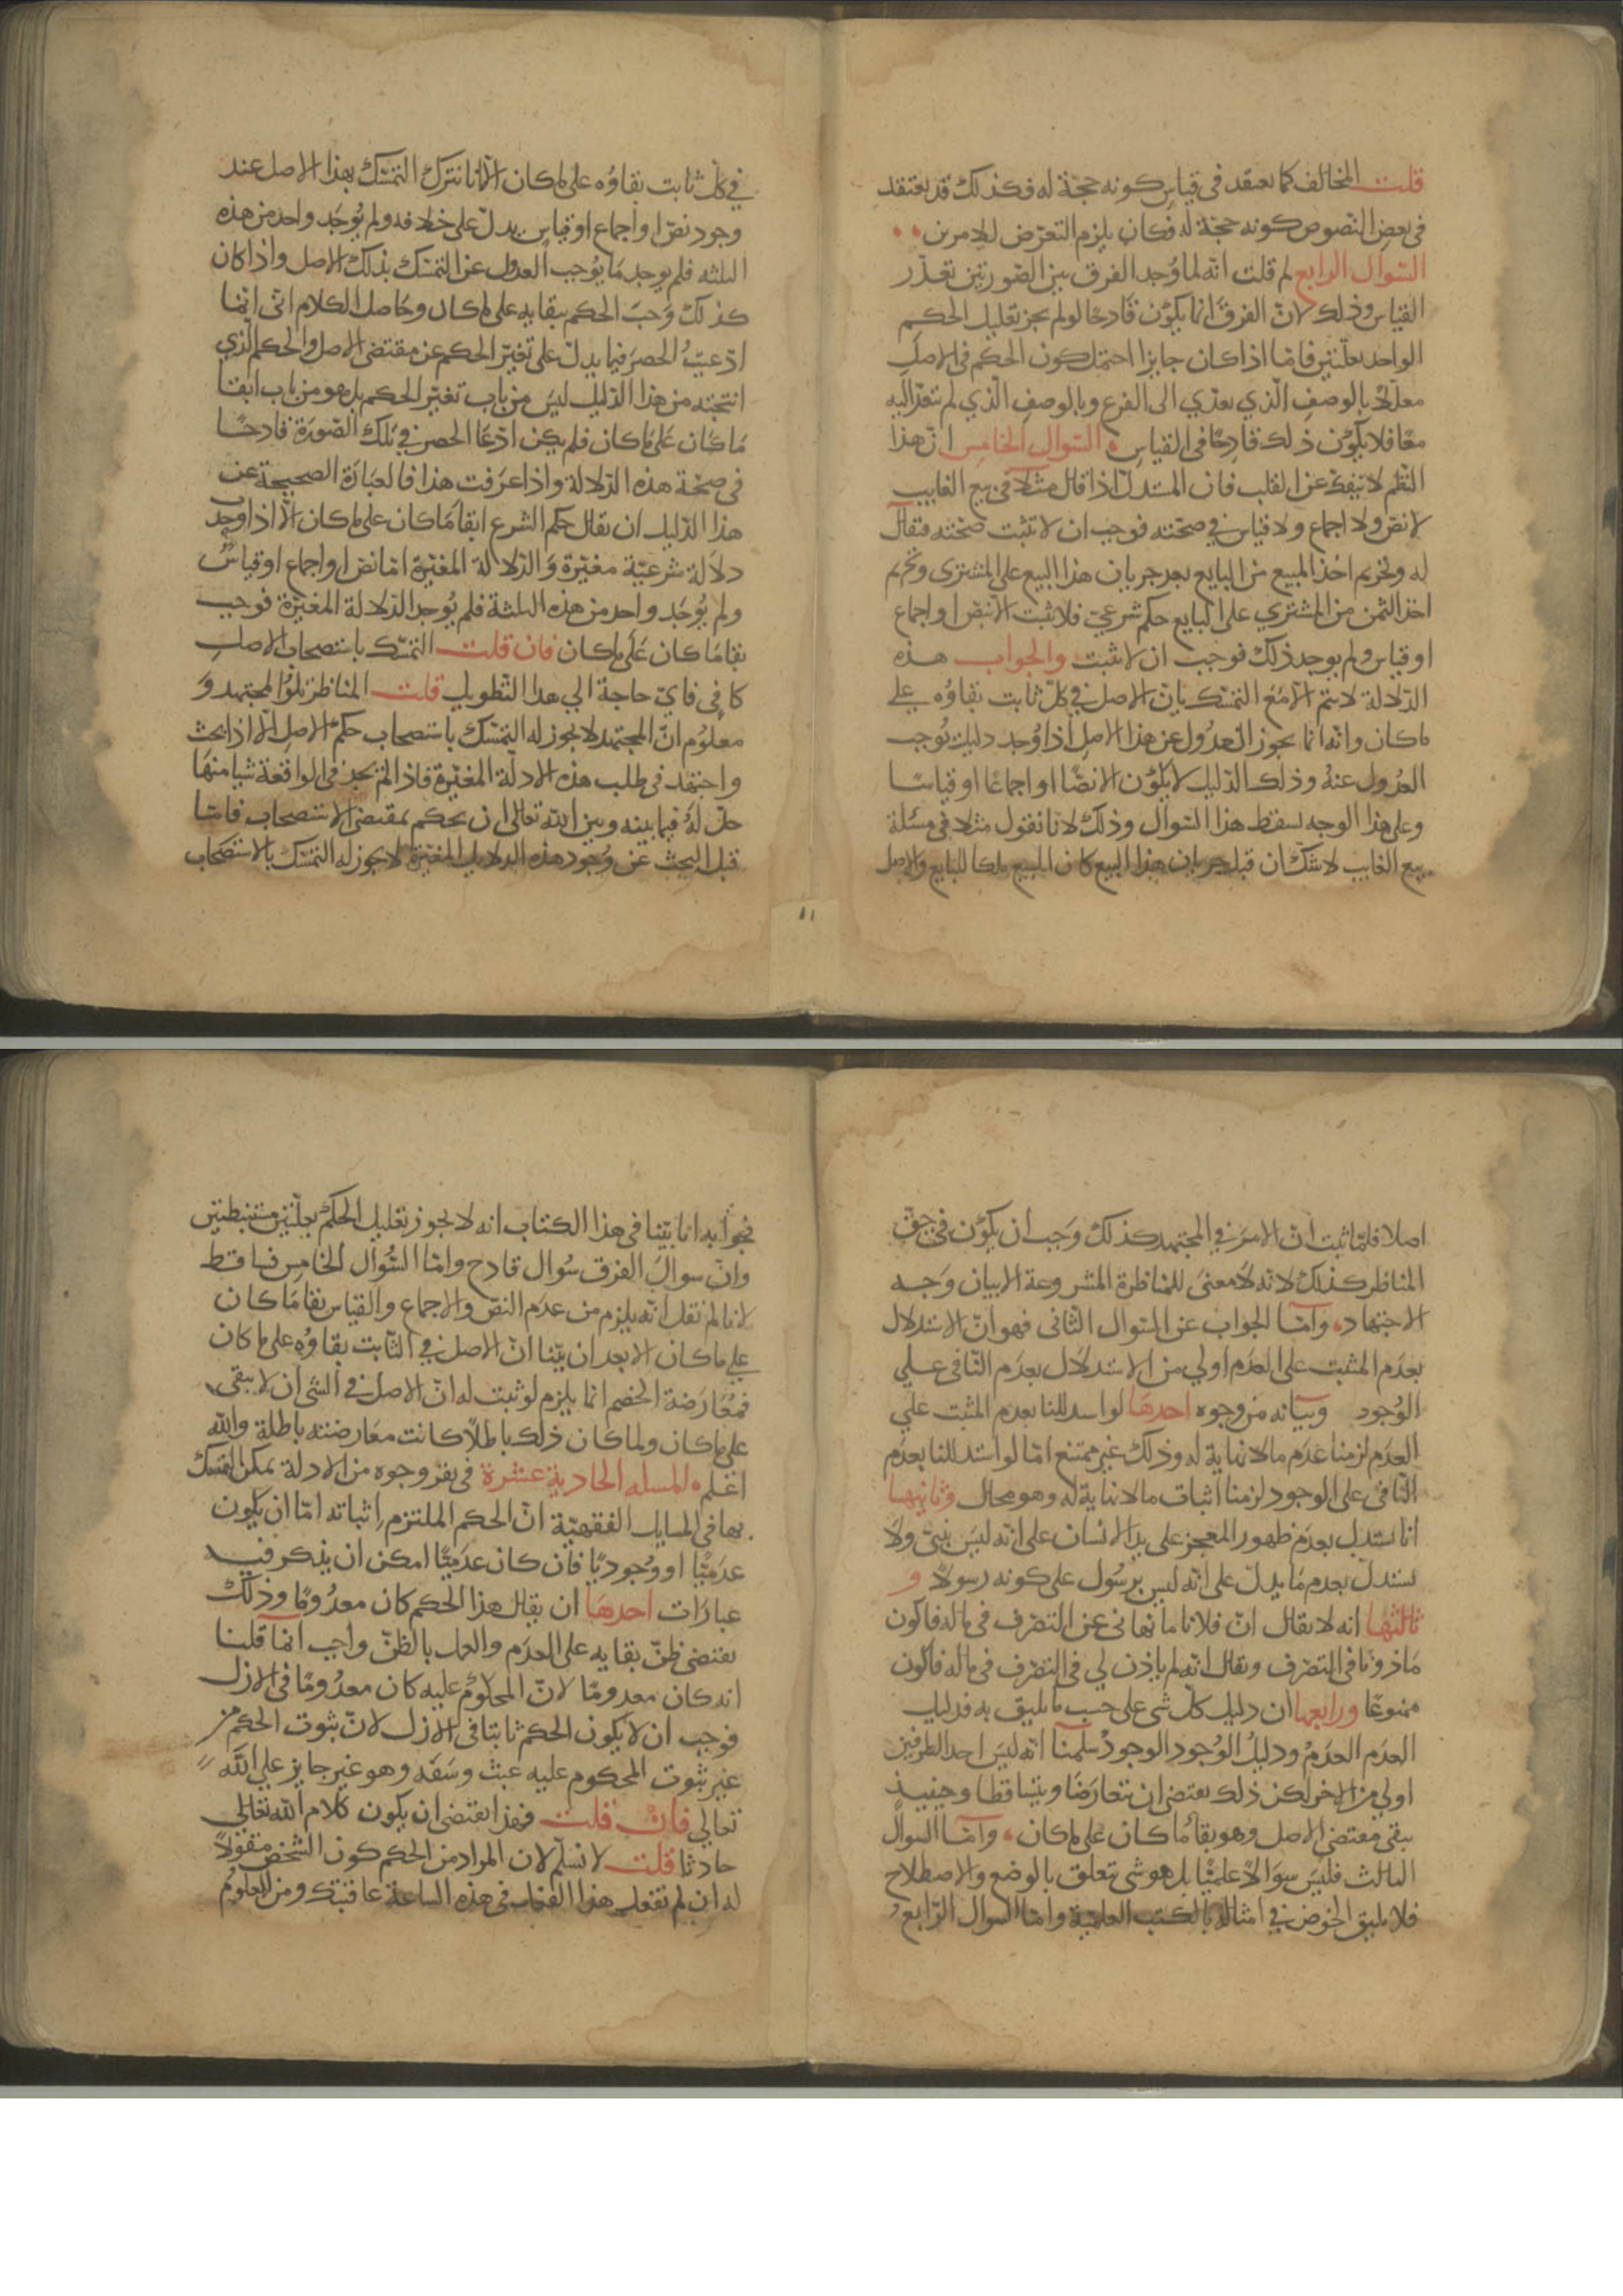 قلت المخالف كما يعتقد في قياس كونه حجة له فكذلك قد يعتقد
في بعض النصوص كونه حجة له فكان يلزم التعرض للامرين
السوال الرابع لم قلت انه لما وجد الفرق بين الصورتين تعذر
القياس وذلك لان الفرق انما يكون قادحا لو لم يجز تعليل الحكم
الواحد بعلتين فاما اذا كان جايزا احتمل كون الحكم في الاصل
معللا بالوصف الذي تعدي الى الفرع وبالوصف الذي لم يتعد اليه
معا فلا يكون ذلك قادحا في القياس السوال الخامس ان هذا
النظم لا ينفك عن القلب فان المستدل اذا قال مثلا في بيع الغايب
لا نص ولا اجماع ولا قياس في صحته فوجب ان لا تثبت صحته فيقال
له وتحريم اخذ المبيع من البايع بعد جريان هذا البيع على المشتري وتحريم
اخذ الثمن من المشتري على البايع حكم شرعي فلا يثبت الا بنص او اجماع
او قياس ولم يوجد ذلك فوجب ان لا يثبت والجواب هذه
الدلالة لا تتم الا مع التمسك بان الاصل في كل ثابت بقاؤه على
ما كان وانه انما يجوز العدول عن هذا الاصل اذا وجد دليل يوجب
العدول عنه وذلك الدليل لا يكون الا نصا او اجماعا او قياسا
وعلى هذا الوجه يسقط هذا السوال وذلك لانا نقول مثلا في مسئلة
بيع الغايب لا شك ان قبل جريان هذا البيع كان المبيع ملكا للبايع والاصل
في كل ثابت بقاؤه على ما كان الا انا نترك التمسك بهذا الاصل عند
وجود نص او اجماع او قياس يدل على خلافه ولم يوجد واحد من هذه
الثلثة فلم يوجد ما يوجب العدول عن التمسك بذلك الاصل واذا كان
كذلك وجب الحكم ببقايه على ما كان وحاصل الكلام اني انما
ادعيت الحصر فيما يدل على تغير الحكم عن مقتضى الاصل والحكم الذي
انتجته من هذا الدليل ليس من باب تغير الحكم بل هو من باب ابقا
ما كان على ما كان فلم يكن ادعا الحصر في تلك الصورة قادحا
في صحة هذه الدلالة واذا عرفت هذا فالعبارة الصحيحة عن
هذا الدليل ان يقال حكم الشرع ابقا ما كان على ما كان الا اذا وجد
دلالة شرعية مغيرة والدلالة المغيرة اما نص او اجماع او قياس
ولم يوجد واحد من هذه الثلثة فلم يوجد الدلالة المغيرة فوجب
بقا ما كان على ما كان فان قلت التمسك باستصحاب الاصل
كافي فاي حاجة الي هذا التطويل قلت المناظر تلو المجتهد و
معلوم ان المجتهد لا يجوز له التمسك باستصحاب حكم الاصل الا اذا بحث
واجتهد في طلب هذه الادلة المغيرة فاذا لم يجد في الواقعة شيا منها
حل له فيما بينه وبين الله تعالى ان يحكم بمقتضى الاستصحاب فاما
قبل البحث عن وجود هذه الدلايل المغيرة لا يجوز له التمسك بالاستصحاب
١١
اصلا فلما ثبت ان الامر في المجتهد كذلك وجب ان يكون في حق
المناظر كذلك لانه لا معنى للمناظرة المشروعة الا بيان وجه
الاجتهاد واما الجواب عن السوال الثاني فهو ان الاستدلال
بعدم المثبت على العدم اولي من الاستدلال بعدم النافي علي
الوجود وبيانه من وجوه احدها لو استدللنا بعدم المثبت علي
العدم لزمنا عدم ما لا نهاية له وذلك غير ممتنع اما لو استدللنا بعدم
النافي على الوجود لزمنا اثبات ما لا نهاية له وهو محال وثانيها
انا نستدل بعدم ظهور المعجز على يد الانسان على انه ليس بنبي ولا
نستدل بعدم ما يدل على انه ليس برسول على كونه رسولا و
ثالثها انه لا يقال ان فلانا ما نهاني عن التصرف في ماله فاكون
ماذونا في التصرف ويقال انه لم ياذن لي في التصرف في ماله فاكون
ممنوعا ورابعها ان دليل كل شي على حسب ما يليق به فدليل
العدم العدم ودليل الوجود الوجود سلمنا انه ليس احد الطرفين
اولي من الاخر لكن ذلك يقتضي ان تعارضا ويتساقطا وحينيذ
يبقى مقتضى الاصل وهو بقا ما كان على ما كان واما السوال
الثالث فليس سوالا علميا بل هو شي تتعلق بالوضع والاصطلاح
فلا يليق الخوض في امثاله بالكتب العلمية واما السوال الرابع
فجوابه انا بينا في هذا الكتاب انه لا يجوز تعليل الحكم بعلتين مستنبطتين
وان سوال الفرق سوال قادح واما السوال الخامس فساقط
لانا لم نقل انه يلزم من عدم النص والاجماع والقياس بقا ما كان
علي ما كان الا بعد ان بينا ان الاصل في الثابت بقاؤه على ما كان
فمعارضة الخصم انما يلزم لو ثبت له ان الاصل في الشي ان لا يبقى
على ما كان ولما كان ذلك باطلا كانت معارضته باطلة والله
اعلم المسله الحادية عشرة في تقرير وجوه من الادلة يمكن التمسك
بها في المسايل الفقهية ان الحكم الملتزم اثباته اما ان يكون
عدميا او وجوديا فان كان عدميا امكن ان يذكر فيه
عبارات احدها ان يقال هذا الحكم كان معدوما وذلك
يقتضي ظن بقايه على العدم والعمل بالظن واجب انما قلنا
انه كان معدوما لان المحكوم عليه كان معدوما في الازل
فوجب ان لا يكون الحكم ثابتا في الازل لان ثبوت الحكم من
غير ثبوت المحكوم عليه عبث وسفه وهو غير جايز علي الله
تعالي فان قلت فهذا يقتضي ان يكون كلام الله تعالي
حادثا قلت لا نسلم لان المراد من الحكم كون الشخص مقولا
له ان لم تفعل هذا الفعل في هذه الساعة عاقبتك ومن المعلوم